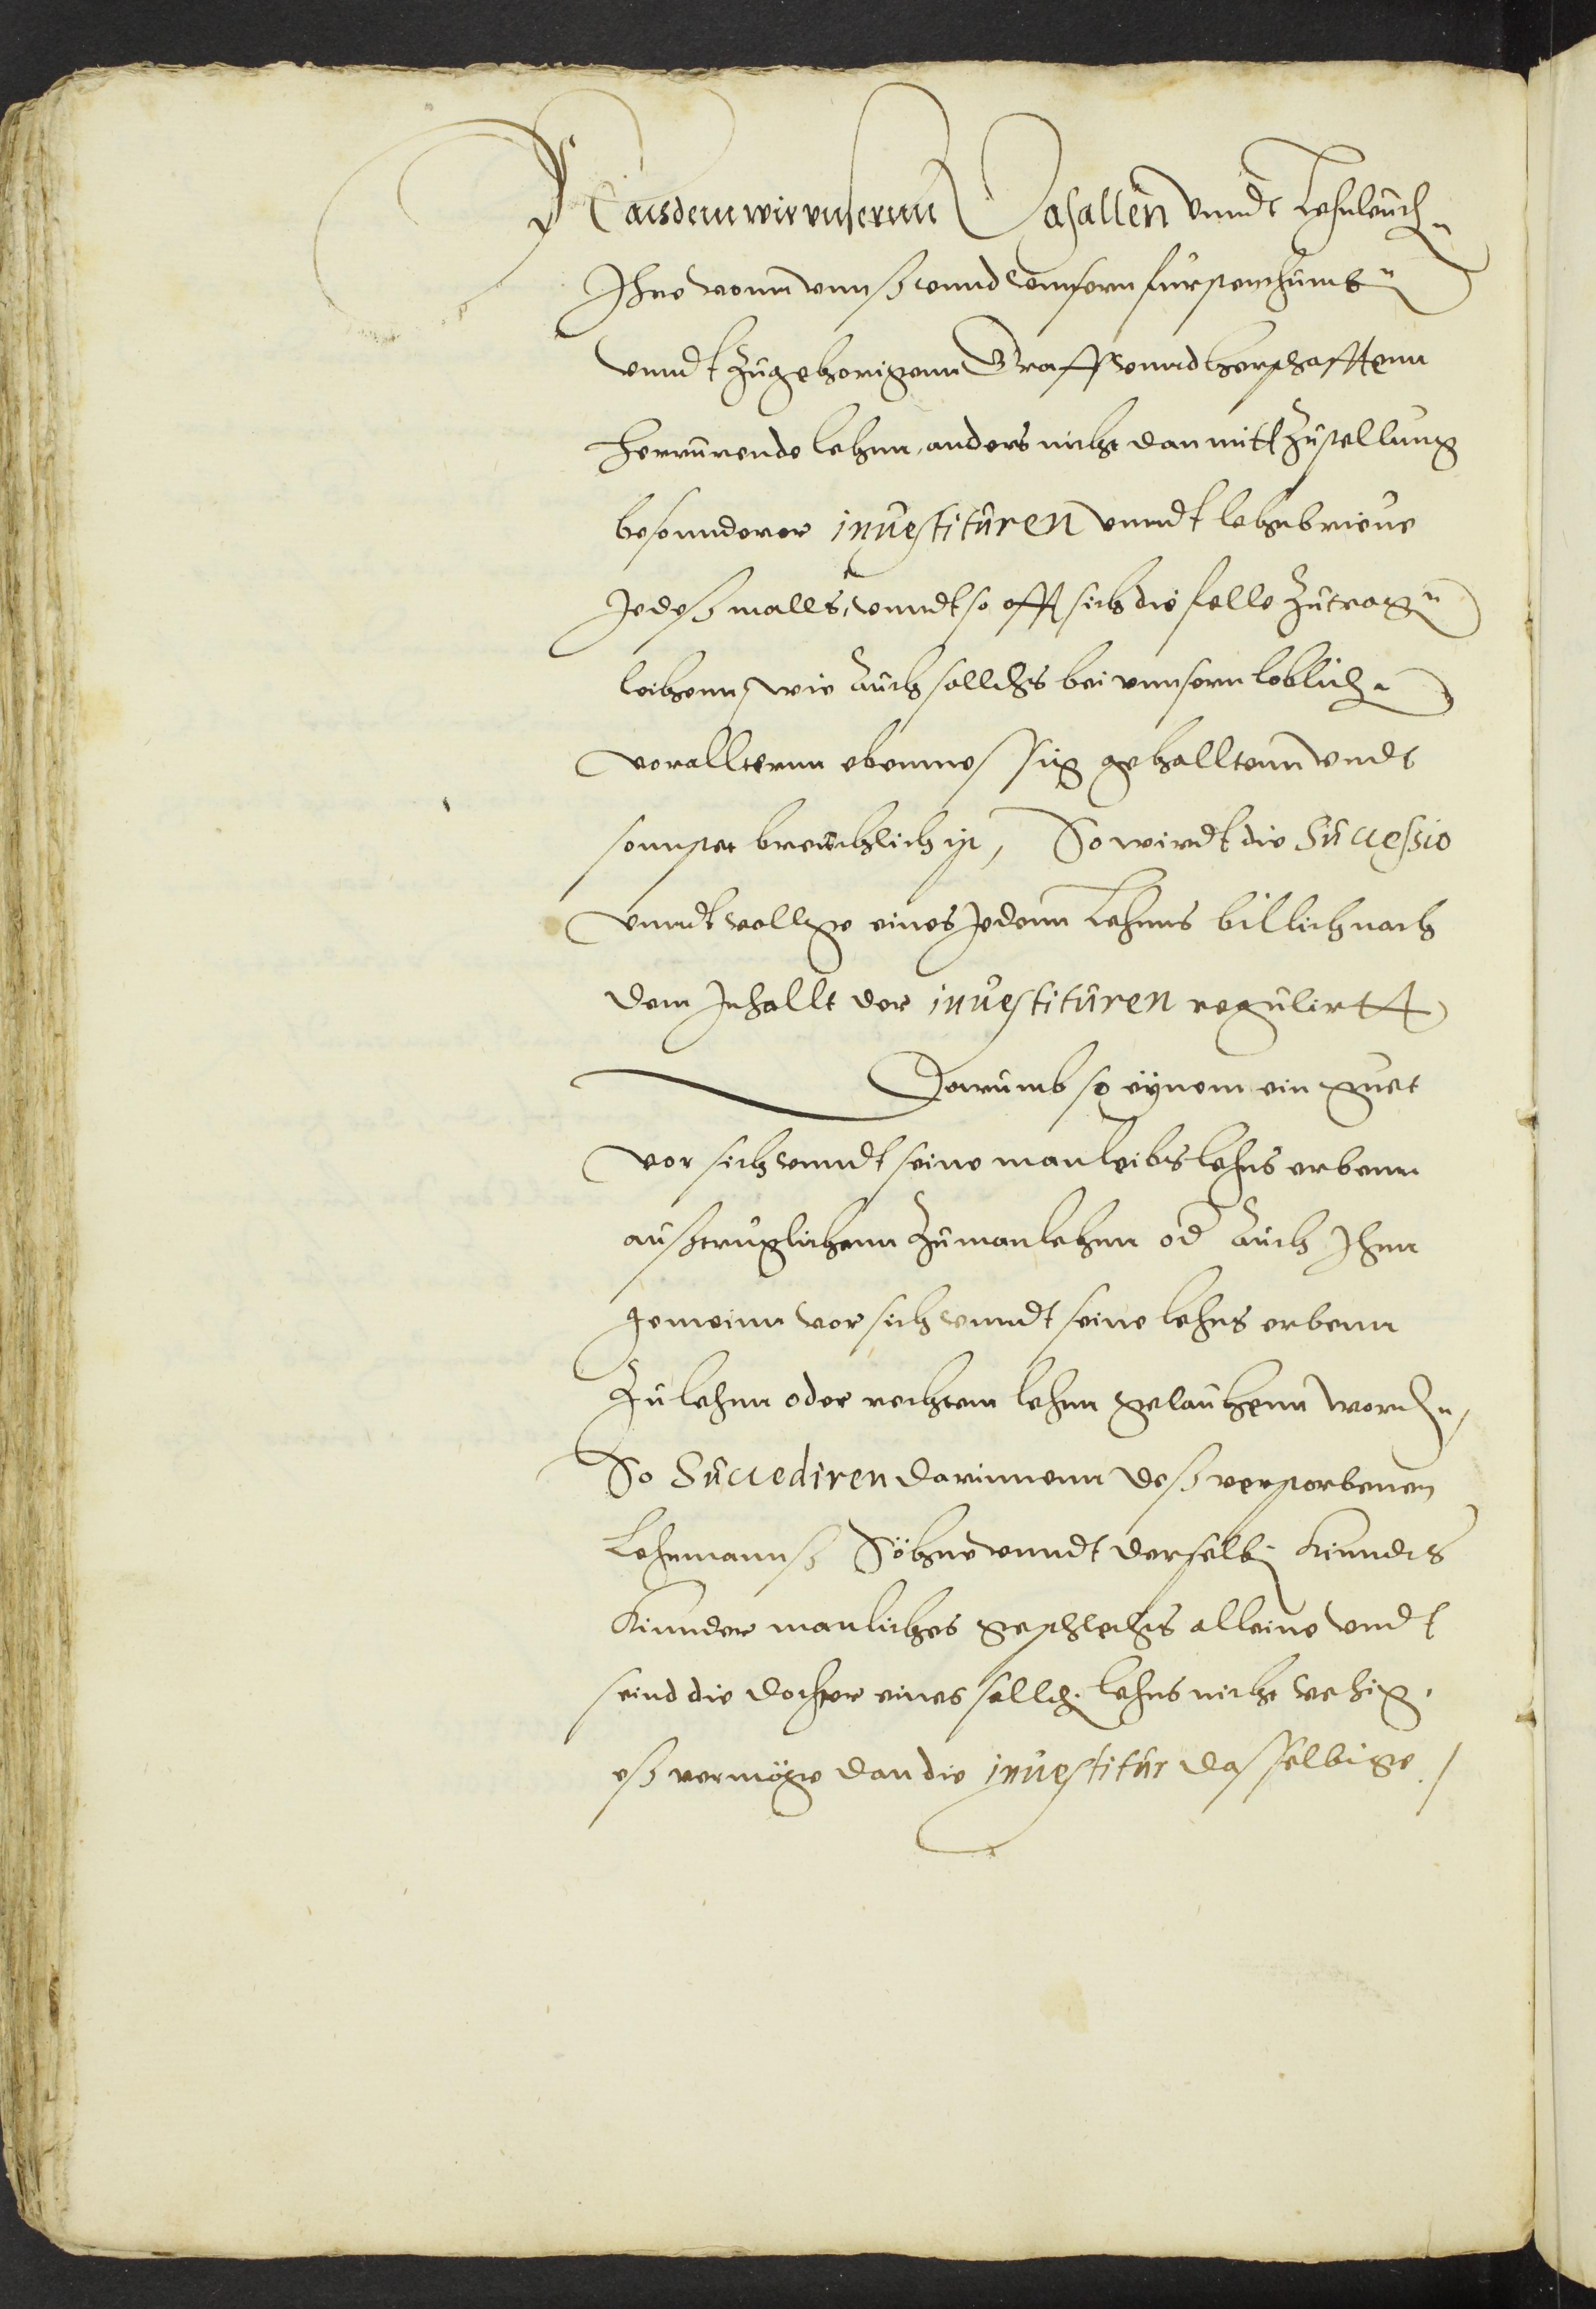 Naisdem wir unsernn Vasallen unndt Lehnleuth
Ihre vonn unnß unnd unnsern fürstenthumb
unndt zugehorigenn Graff unnd herschafftenn
herrurende lehnn, anders nicht dan mitt zustellung
besonnderer investituren unndt lehnbrieve
Jedeßmalls, unndt so offt sich die felle zutragn
leihenn, wie auch sollchs bei unnsern loblichn
vorallternn ebenmessig gehalltenn undt
sonnstet breuchlich ist, So wirdt die Successio
unndt vollge eines Jedenn Lehnns billich nach
dem Inhallt der investituren regulirtt
Darumb so eynem ein guet
vor sich unndt seine manleibs lehns erbenn
außtruglichenn zu manlehnn od auch Ihnn
gemeinn vor sich unndt seine lehns erbenn
zu lehnn oder rechtem lehnn gelauhenn wordn,
So Succediren darinnenn deß verstorbenen
Lehnmannß Söhne unndt derselbn Kinndts
Kinnder manliches geschlechts alleine undt
seind die dochter eines sollch. lehns nicht vehig,
eß vermöge dan die investitur dasselbige /